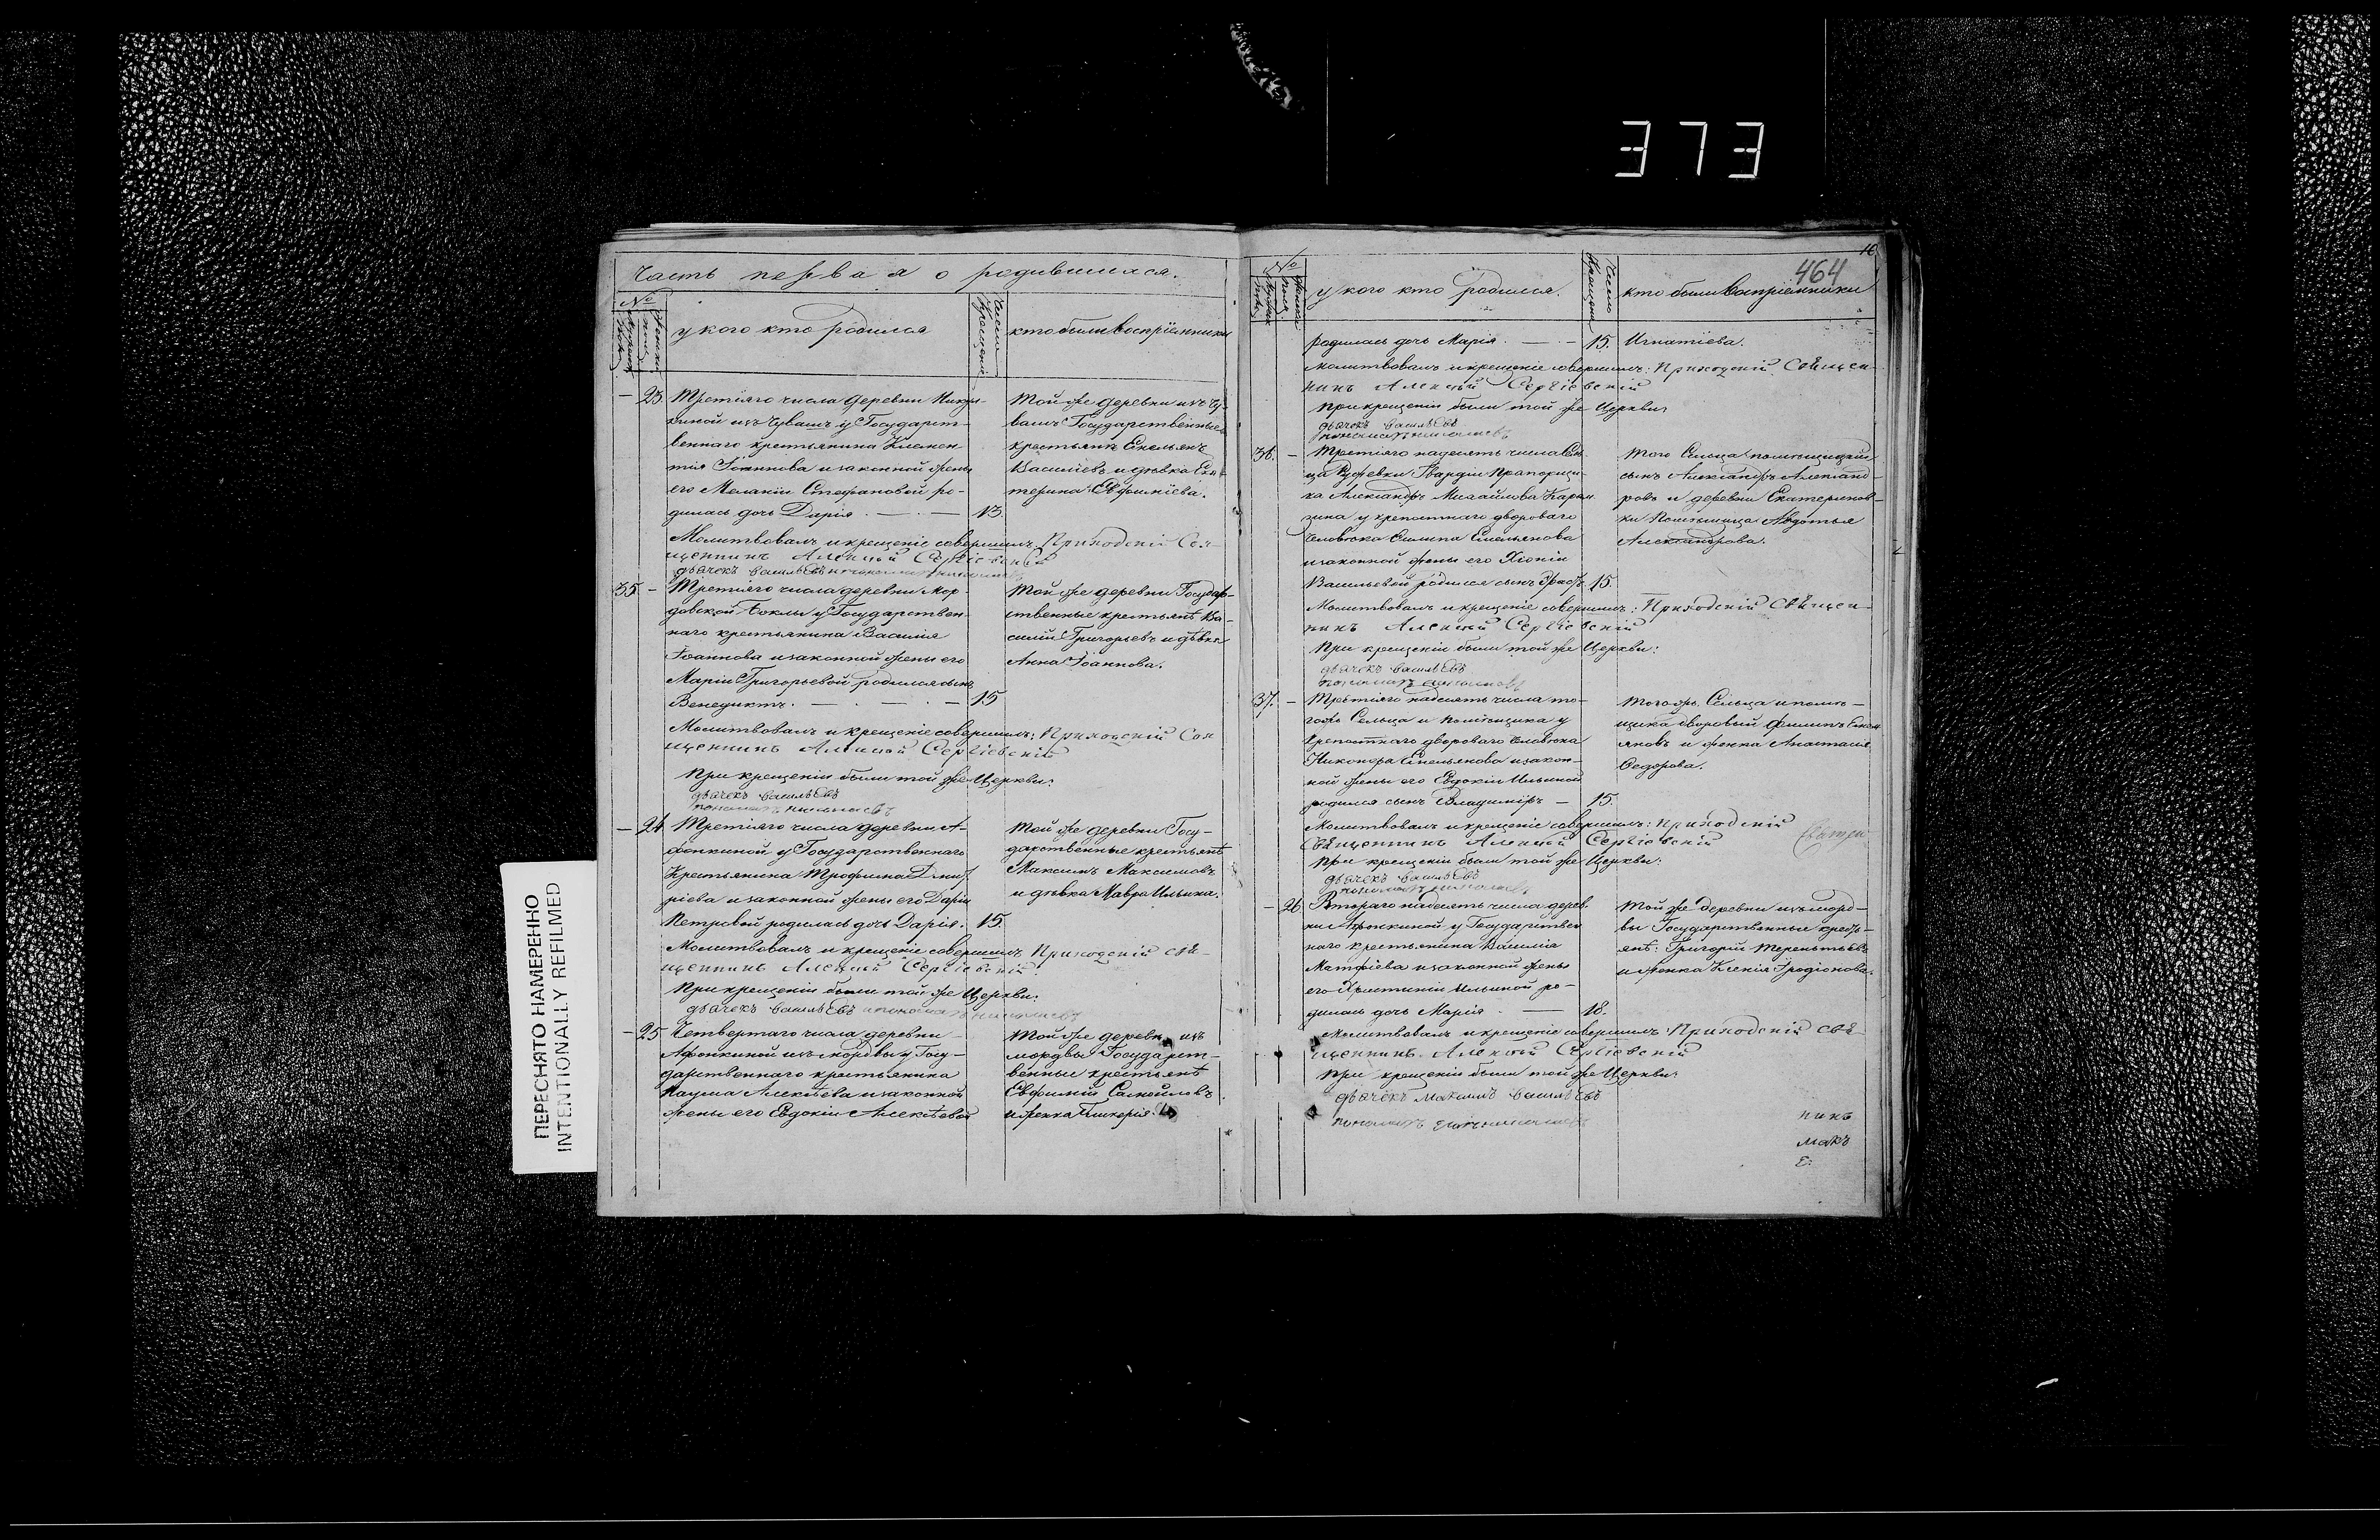 373
Часть первая о родившихся.
№
у кого кто родился
Число Крещенiя
кто были воспрiемники
23. Третiяго числа деревни Никул-
киной изъ Чувашъ у Государст-
веннаго крестьянина Климен-
тiя Iоаннова и законной жены
его Меланiи Стефановой ро-
дилась дочь Дарiя. — 13.
Той же деревни изъ Чу-
вашъ Государственные
крестьянъ Емельянъ
Василiевъ и дѣвка Ека-
терина Евфимiева.
Молитвовалъ и крещенiе совершилъ Приходскiй Свя-
щенникъ Алексѣй Сергiевскiй
дьячекъ Васильевъ и пономарь
35. - Третiяго числа деревни Мор-
довской Боклы у Государствен-
наго крестьянина Василiя
Iоаннова и законной жены его
Марiи Григорьевой родился сынъ
Венедиктъ. — 15
Той же деревни Государ-
ственные крестьянѣ Ва-
силiй Григорьевъ и дѣвка
Анна Iоаннова.
Молитвовалъ и крещенiе совершилъ: Приходскiй Свя
щенникъ Алексѣй Сергiевскiй
При крещенiи были той же Церкви:
дьячекъ Васильевъ
пономарь
- 24 Третiяго числа деревни А-
фонкиной у Государственнаго
Крестьянина Трофима Дмит-
рiева и законной жены его Дарiи
Петровой родилась дочь Дарiя. 15.
Той же деревни Госу-
дарственные крестьянѣ
Максимъ Максимовъ
и дѣвка Мавра Ильина.
Молитвовалъ и крещенiе совершилъ Приходскiй Свя-
щенникъ Алексѣй Сергiевскiй
При крещенiи были той же Церкви:
дьячекъ Васильевъ и пономарь
- 25 Четвертаго числа деревни
Афонкиной изъ мордвы у Госу-
дарственнаго крестьянина
Наума Алексѣева и законной
жены его Евдокiи Алексѣевой
Той же деревни изъ
мордвы Государст-
венные крестьянѣ
Евфимiй Самойловъ
и женка Гликерiя
16
464
№
у кого кто родился.
Число Крещенiя
кто были Воспрiемники
родилась дочь Марiя. — 15. Игнатiева.
Молитвовалъ и крещенiе совершилъ: Приходскiй Священ-
никъ Алексѣй Сергiевскiй
При крещенiи были той же Церкви:
дьячекъ Васильевъ
пономарь
36. - Третiяго надесять числа Сель-
ца Гвардiи Прапорщи-
ка Александра Михайлова Карам
зина у крепостнаго двороваго
Человѣка Филипа Емельянова
и законной жены его Хiонiи
Васильевой родился сынъ 15.
Того Сельца помещицкiй
сынъ Александръ Александ-
ровъ и деревни Екатеринов-
ки Помѣщица Авдотья
Александрова.
Молитвовалъ и крещенiе совершилъ: Приходскiй Священ-
никъ Алексѣй Сергiевскiй
При крещенiи были той же Церкви:
дьячекъ Васильевъ
пономарь
37. - Третiяго надесять числа то-
гожъ Сельца и помѣщика у
Крепостнаго двороваго Человѣка
Никонора Емельянова и закон-
ной жены его Евдокiи Ильиной
родился сынъ Владимiръ — 15.
Тогожъ Сельца и помѣ-
щика дворовый Филипъ Емель
яновъ и женка Анастасiя
Федорова.
Молитвовалъ и крещенiе совершилъ: Приходскiй
Священникъ Алексѣй Сергiевскiй
При крещенiи были той же Церкви:
дьячекъ Васильевъ
пономарь
- 26. Втораго надесять числа дерев.
ни Афонкиной у Государствен
наго крестьянина Василiя
Матфiева и законной жены
его Христинiи Ильиной ро-
дилась дочь Марiя. — 18.
Той же деревни изъ морд-
вы Государственные кресть-
янѣ: Григорiй Терентьевъ
и женка Ксенiя Iродiонова.
Молитвовалъ и крещенiе совершилъ Приходскiй Свя
щенникъ Алексѣй Сергiевскiй
При крещенiи были той же Церкви:
дьячекъ Максимъ Васильевъ
пономарь
никъ
макъ
Е.
ПЕРЕСНЯТО НАМЕРЕННО
INTENTIONALLY REFILMED